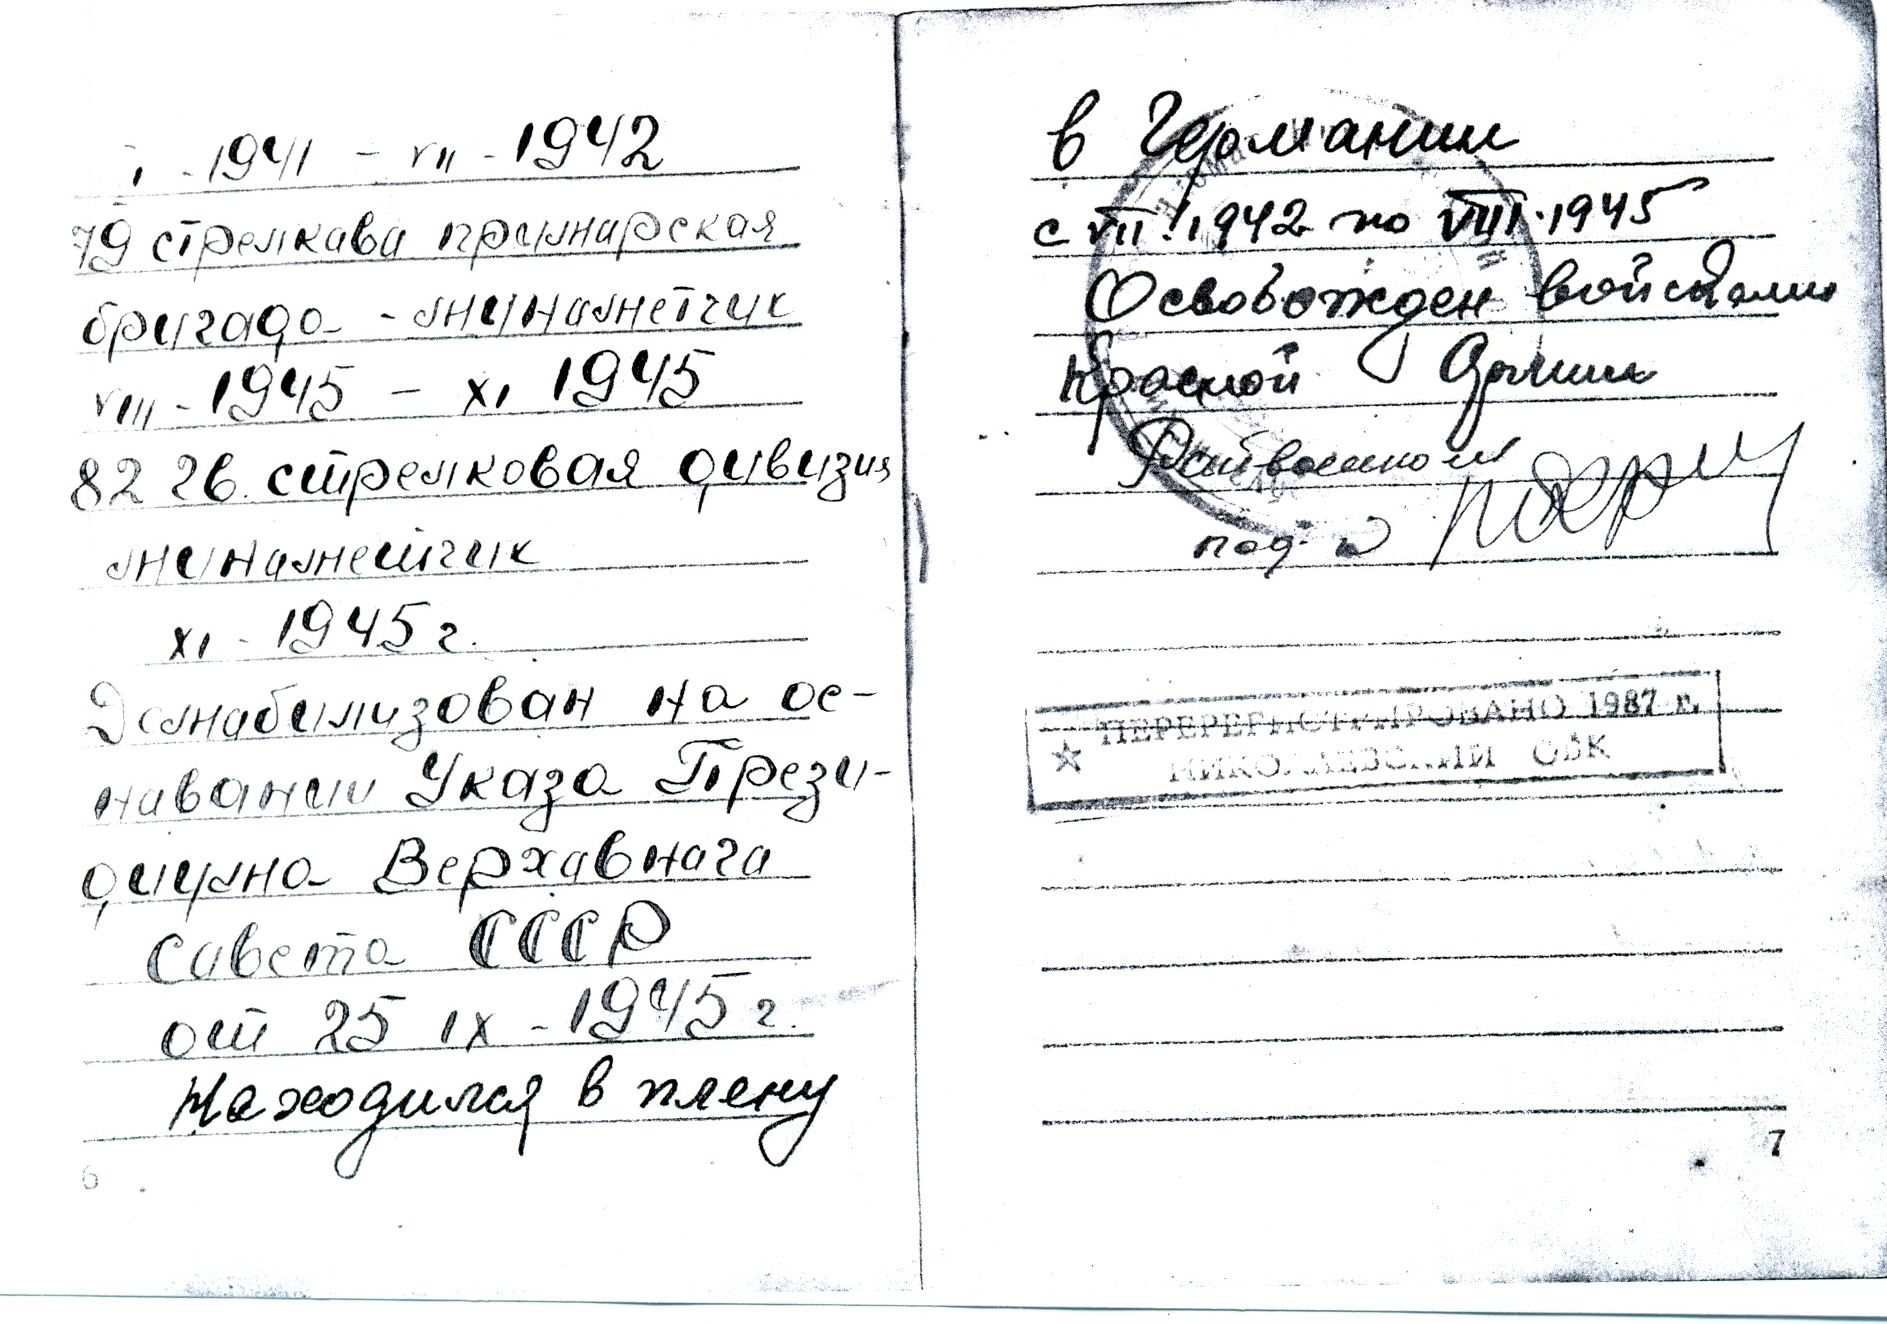 I - 1941 - VII - 1942
79 стрелкава примарская
бригада - миламетчик
VIII - 1945 - XI 1945
82 гв. стрелковая дивизия
минаметчик
XI - 1945 г.
Демабилизован на ос-
навании Указа Прези-
диума Верхавнага
Савета СССР
от 25 IX - 1945 г.
Находился в плену
6
в Германии
с VII. 1942 по VIII. 1945
Освобожден войсками
Красной Армии
Райвоенком
под-к
ПЕРЕРЕГИСТРИРОВАНО 1987 г.
НИКОЛАЕВСКИЙ ОВК
7